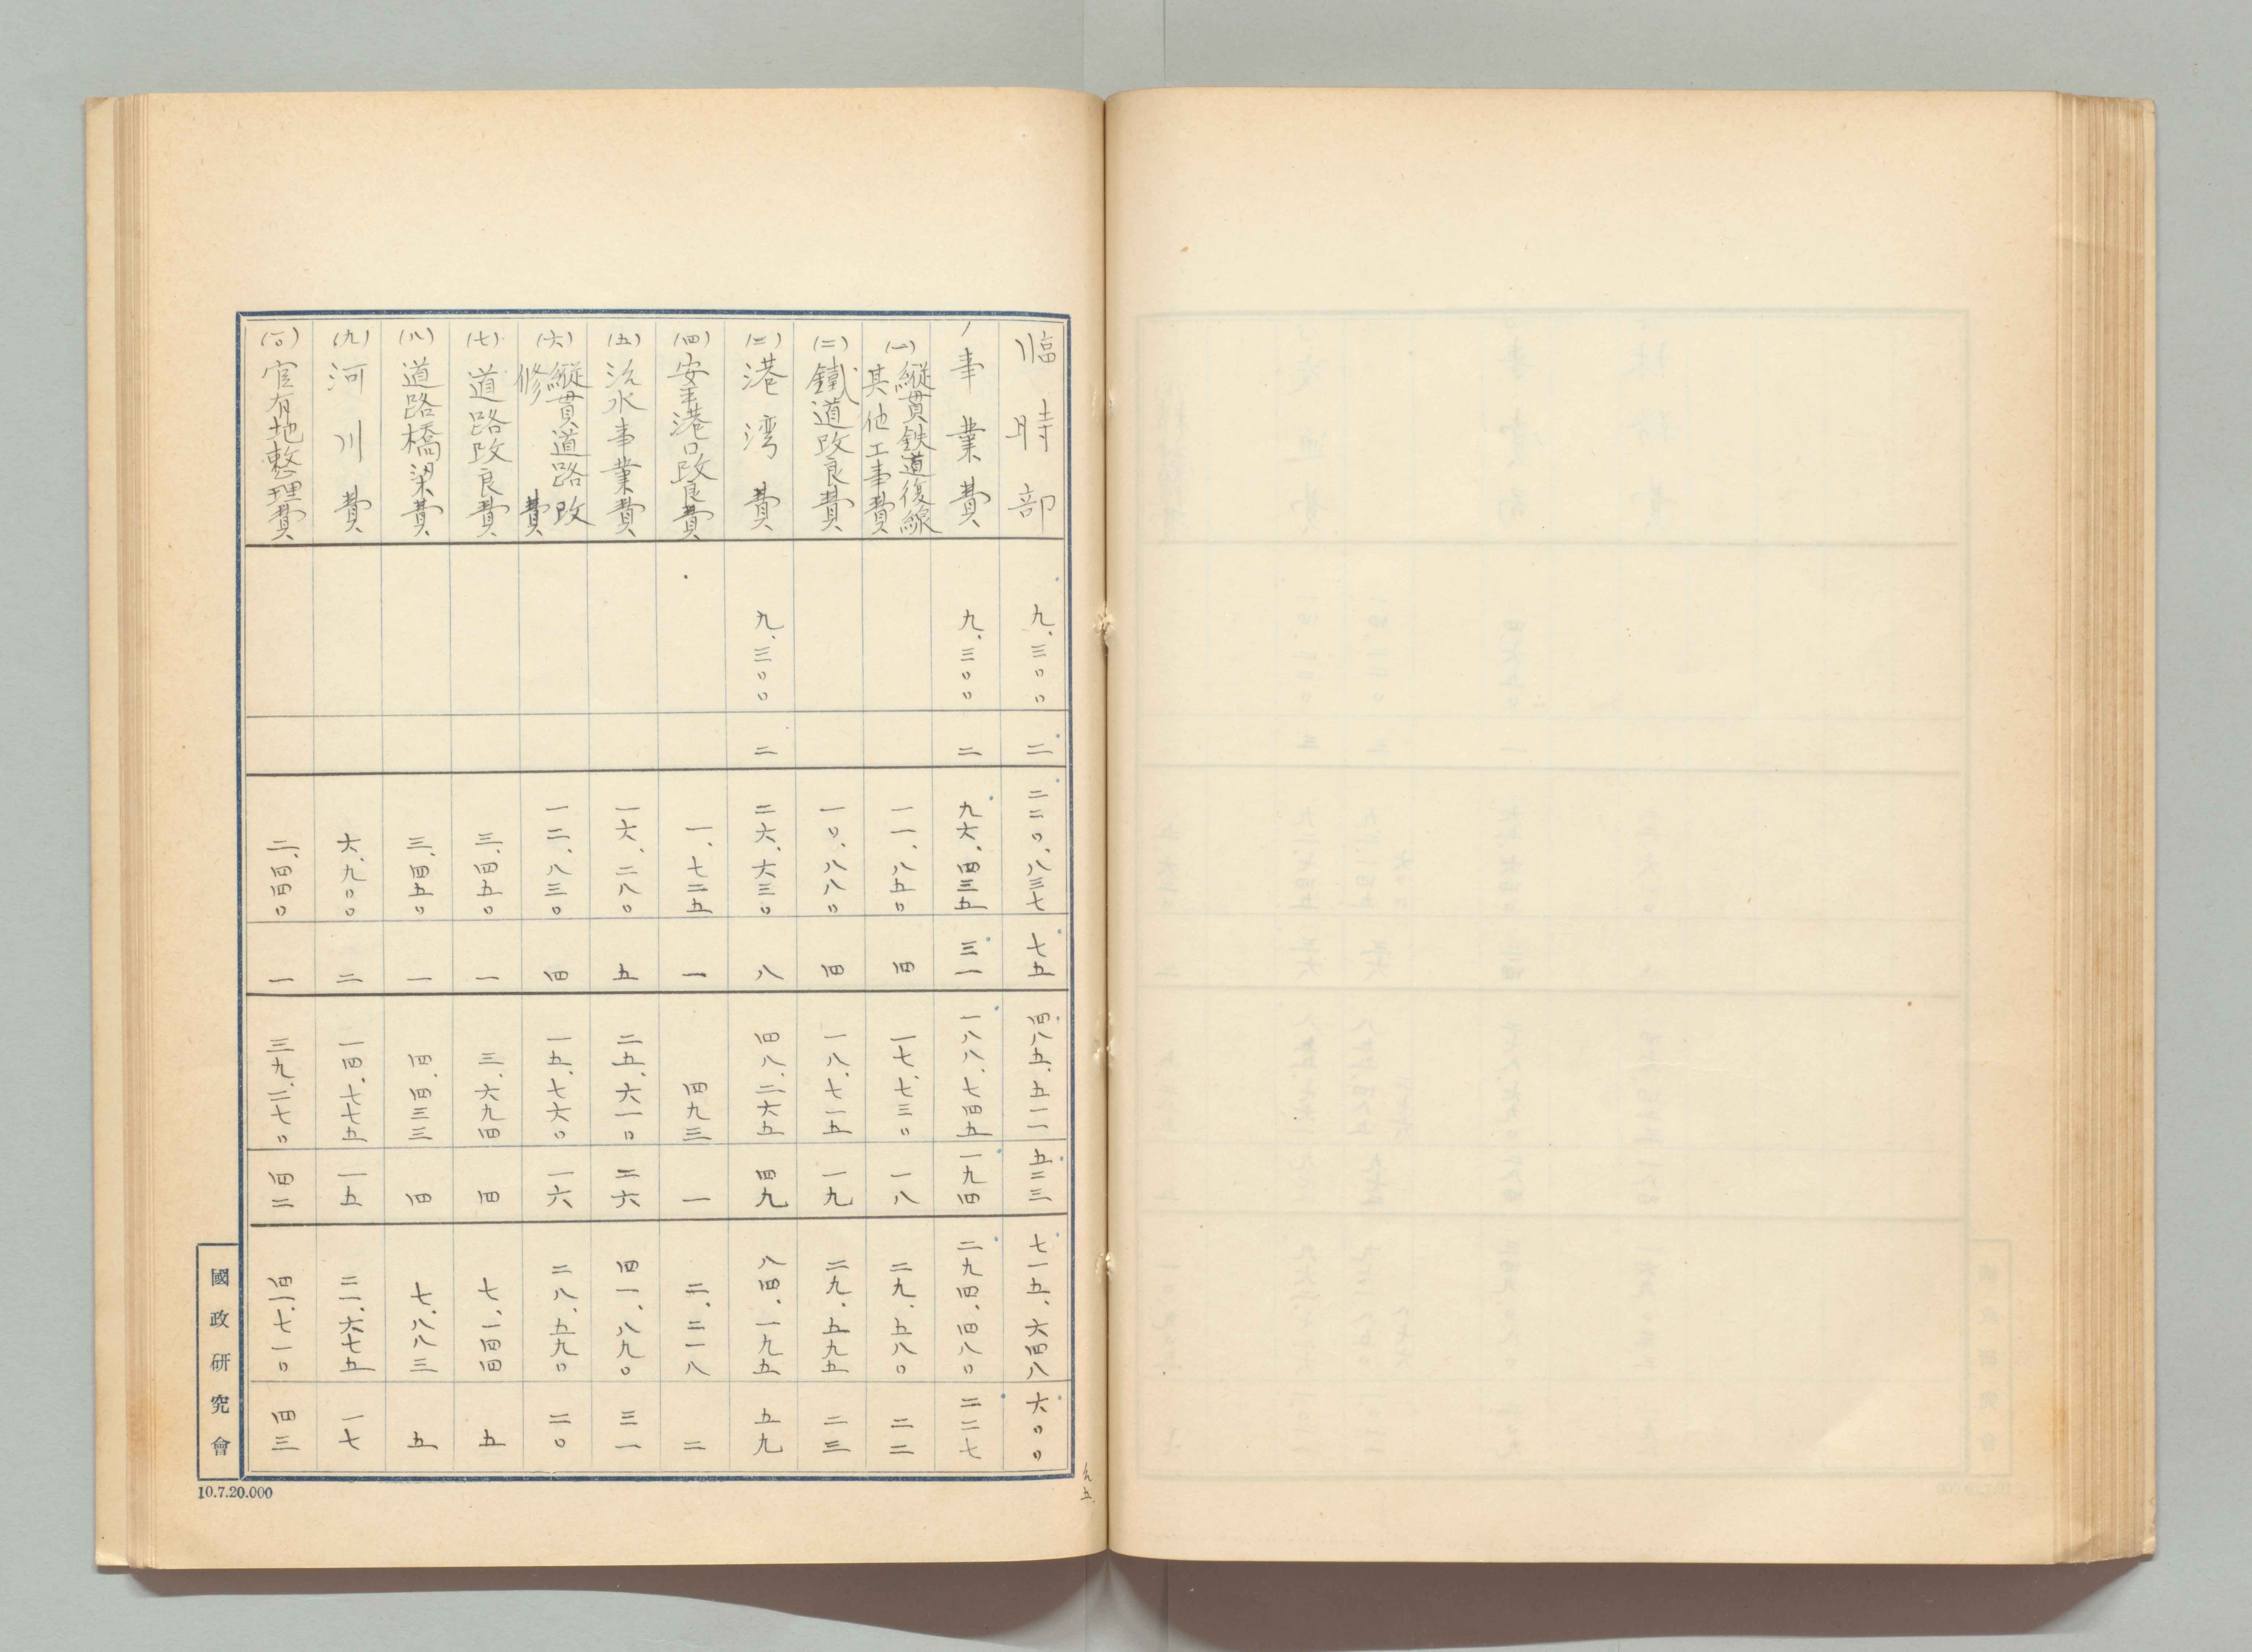 臨時部 九、三〇〇 二 二二〇、八三七 七五 四八五、五一一 五二三 七一五、六四八 六〇〇
1 事業費 九、三〇〇 二 九六、四三五 三一 一八八、七四五 一九四 二九四、四八〇 二二七
(一) 縦貫鉄道復線
其他工事費 一一、八五〇 四 一七、七三〇 一八 二九、五八〇 二二
(二) 鐵道改良費 一〇、八八〇 四 一八、七一五 一九 二九、五九五 二三
(三) 港湾費 九、三〇〇 二 二六、六三〇 八 四八、二六五 四九 八四、一九五 五九
(四) 安平港口改良費 一、七二五 一 四九三 一 二、二一八 二
(五) 治水事業費 一六、二八〇 五 二五、六一〇 二六 四一、八九〇 三一
(六) 縦貫道路改
修費 一二、八三〇 四 一五、七六〇 一六 二八、五九〇 二〇
(七) 道路改良費 三、四五〇 一 三、六九四 四 七、一四四 五
(八) 道路橋梁費 三、四五〇 一 四、四三三 四 七、八八三 五
(九) 河川費 六、九〇〇 二 一四、七七五 一五 二一、六七五 一七
(一〇) 官有地整理費 二、四四〇 一 三九、二七〇 四二 四一、七一〇 四三
國政研究會
10.7.20.000